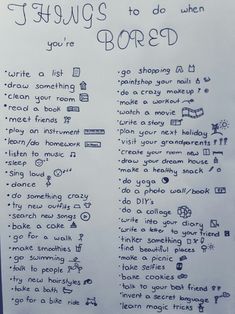 THINGS to do when
you're BORED
• write a list
• draw something
• clean your room
• read a book
• meet friends
• play an instrument
• learn/do homework
• listen to music
• sleep
• sing loud
• dance
• do something crazy
• try new outfits
• search new songs
• bake a cake
• go for a walk
• make smoothies
• go swimming
• talk to people
• try new hairstyles
• take a bath
• go for a bike ride
• go shopping
• paint your nails
• do a crazy makeup
• make a workout
• watch a movie
• write a story
• plan your next holiday
• visit your grandparents
• create your room new
• draw your dream house
• make a healthy snack
• do yoga
• do a photo wall/book
• do DIY's
• do a collage
• write into your diary
• write a letter to your friend
• tinker something
• find beautiful places
• make a picnic
• take selfies
• bake cookies
• talk to your best friend
• invent a secret language
• learn magic tricks